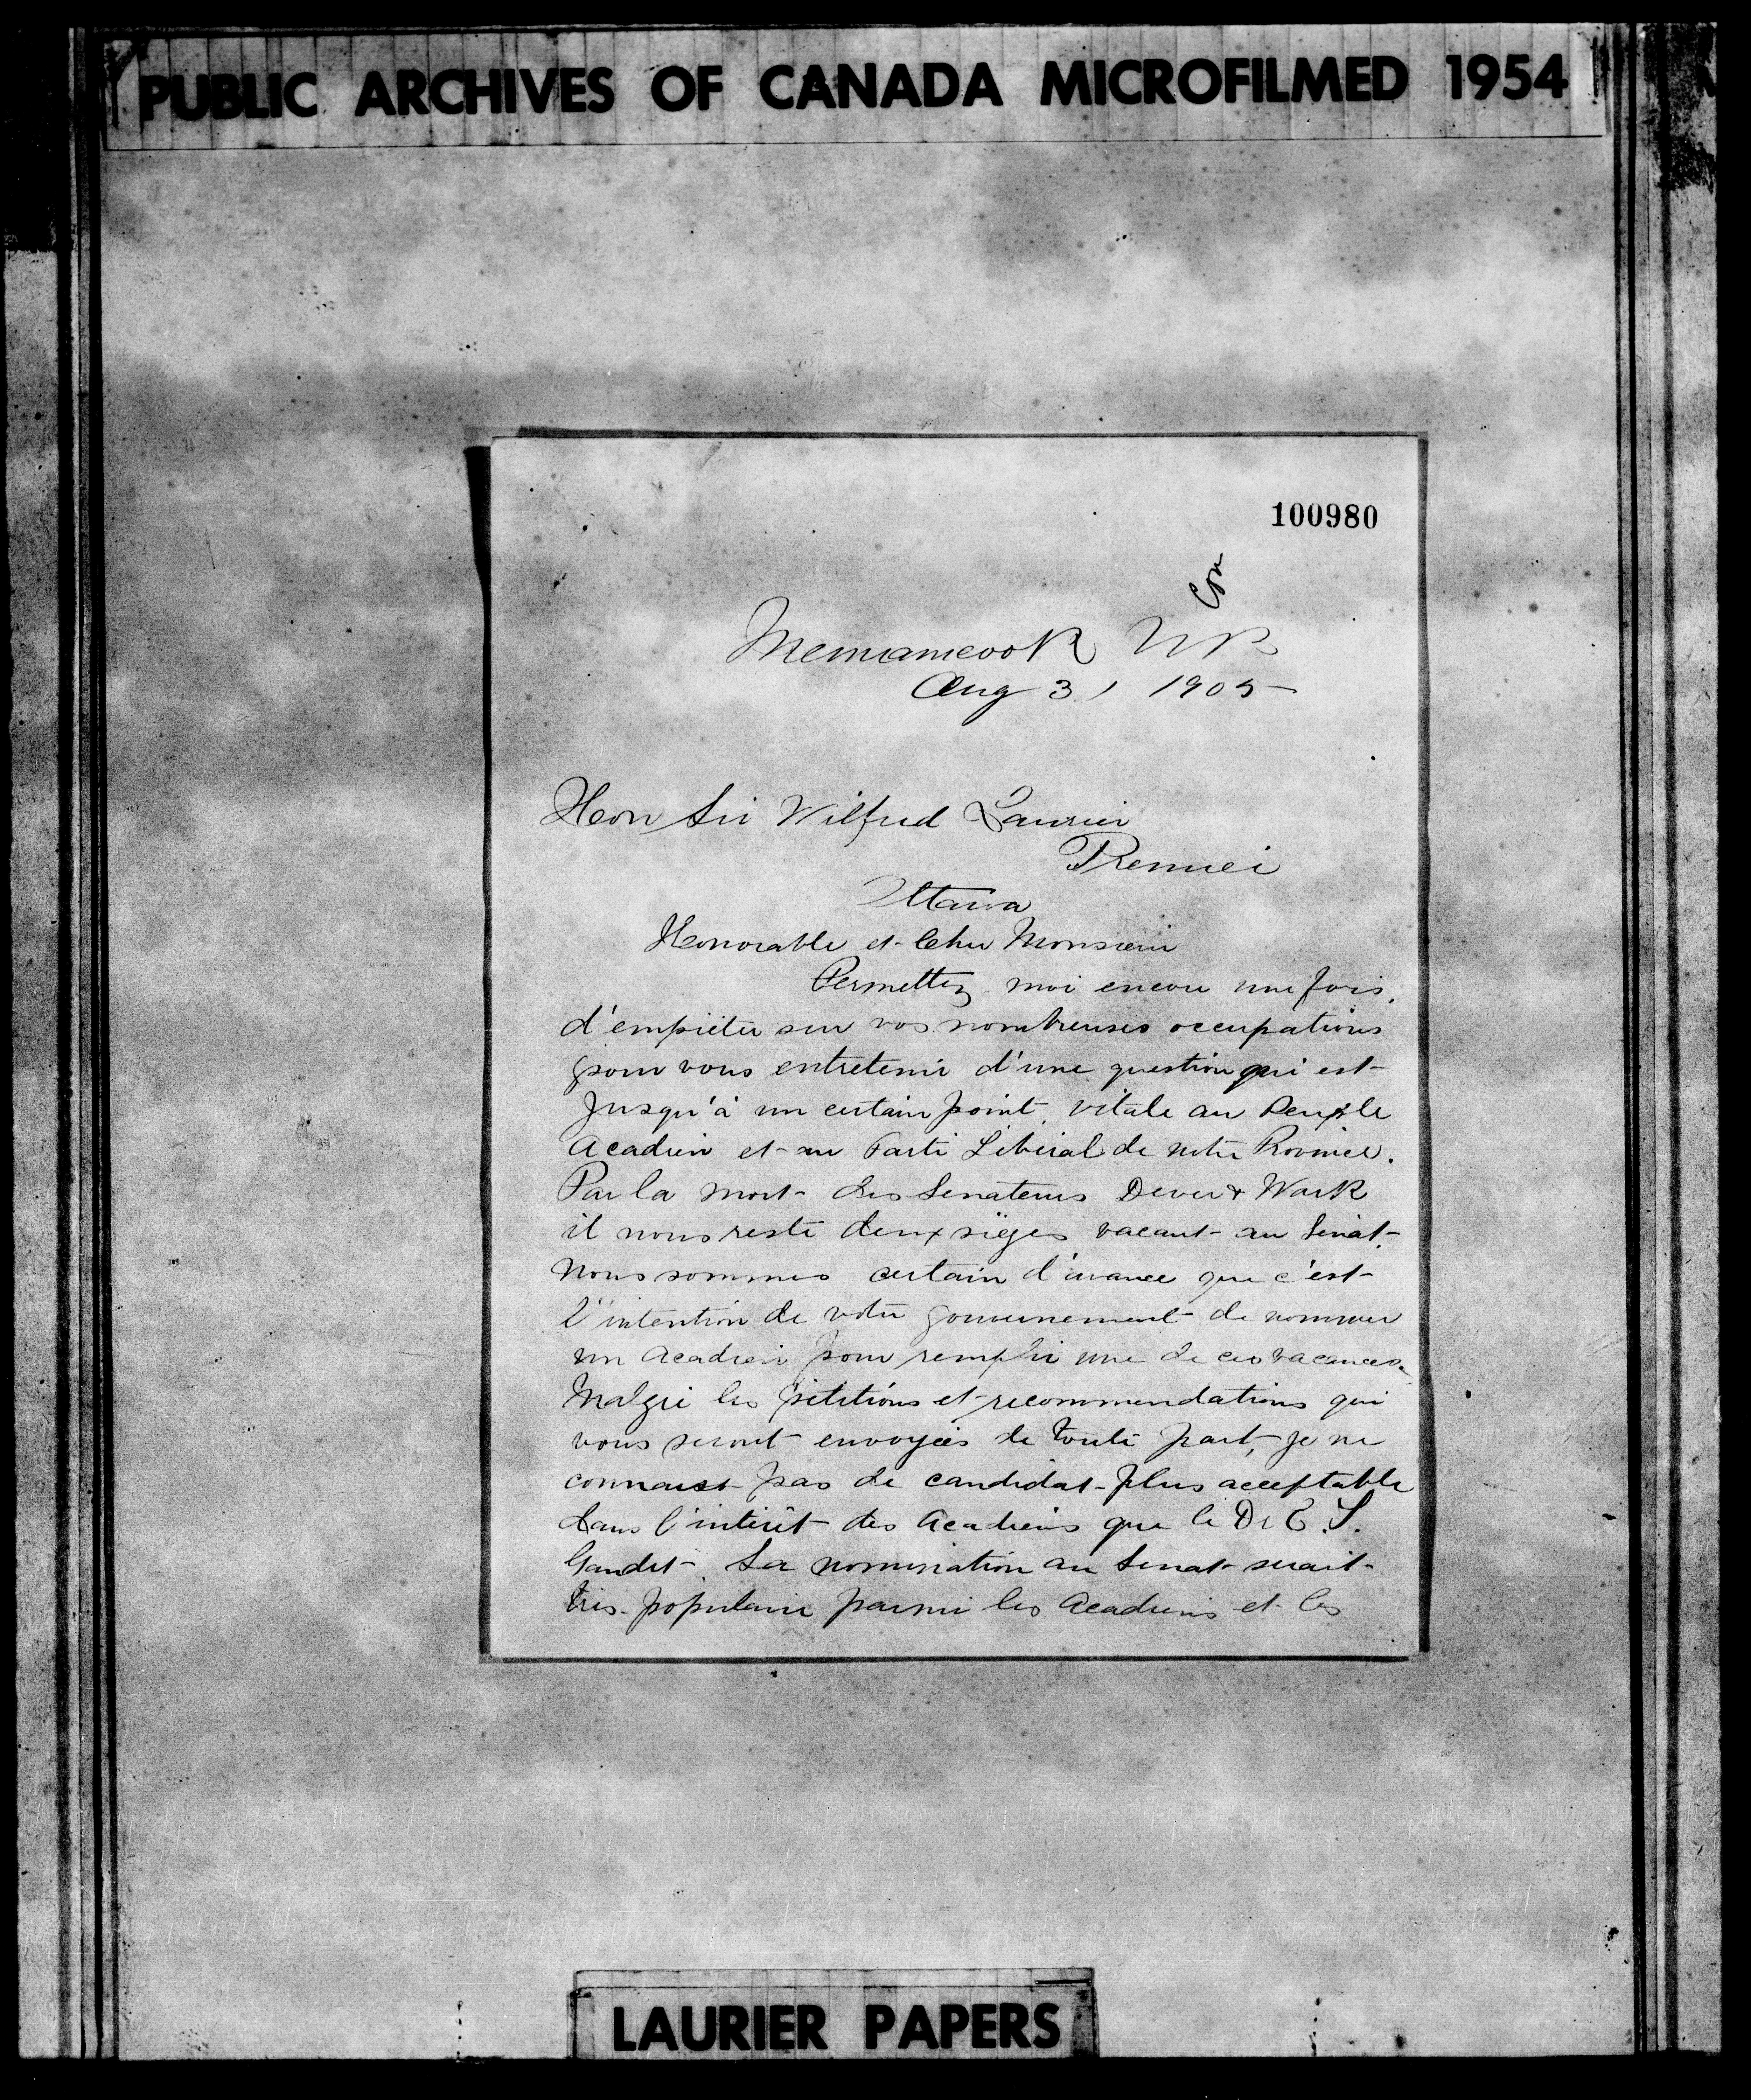 PUBLIC ARCHIVES OF CANADA MICROFILMED 1954
100980
Memramcook NB
Aug 31 1905
Hon Sir Wilfrid Laurier
Premier
Ottawa
Honorable et Cher Monsieur
Permettez-moi encore une fois,
d'empiéter sur vos nombreuses occupations
pour vous entretenir d'une question qui est
jusqu'à un certain point vitale au Peuple
Acadien et au Parti Libéral de notre Province.
Par la mort des Senateurs Dever & Wark
il nous reste deux sièges vacant au Sénat.
Nous sommes certain d'avance que c'est
l'intention de votre gouvernement de nommer
un Acadien pour remplir une de ces vacances.
Malgré les pétitions et recommendations qui
vous seront envoyées de toute part, je ne
connais pas de candidat plus acceptable
dans l'intérêt des Acadiens que le Dr E. T.
Gaudet. Sa nomination au Senat serait
très populaire parmi les Acadiens et les
LAURIER PAPERS